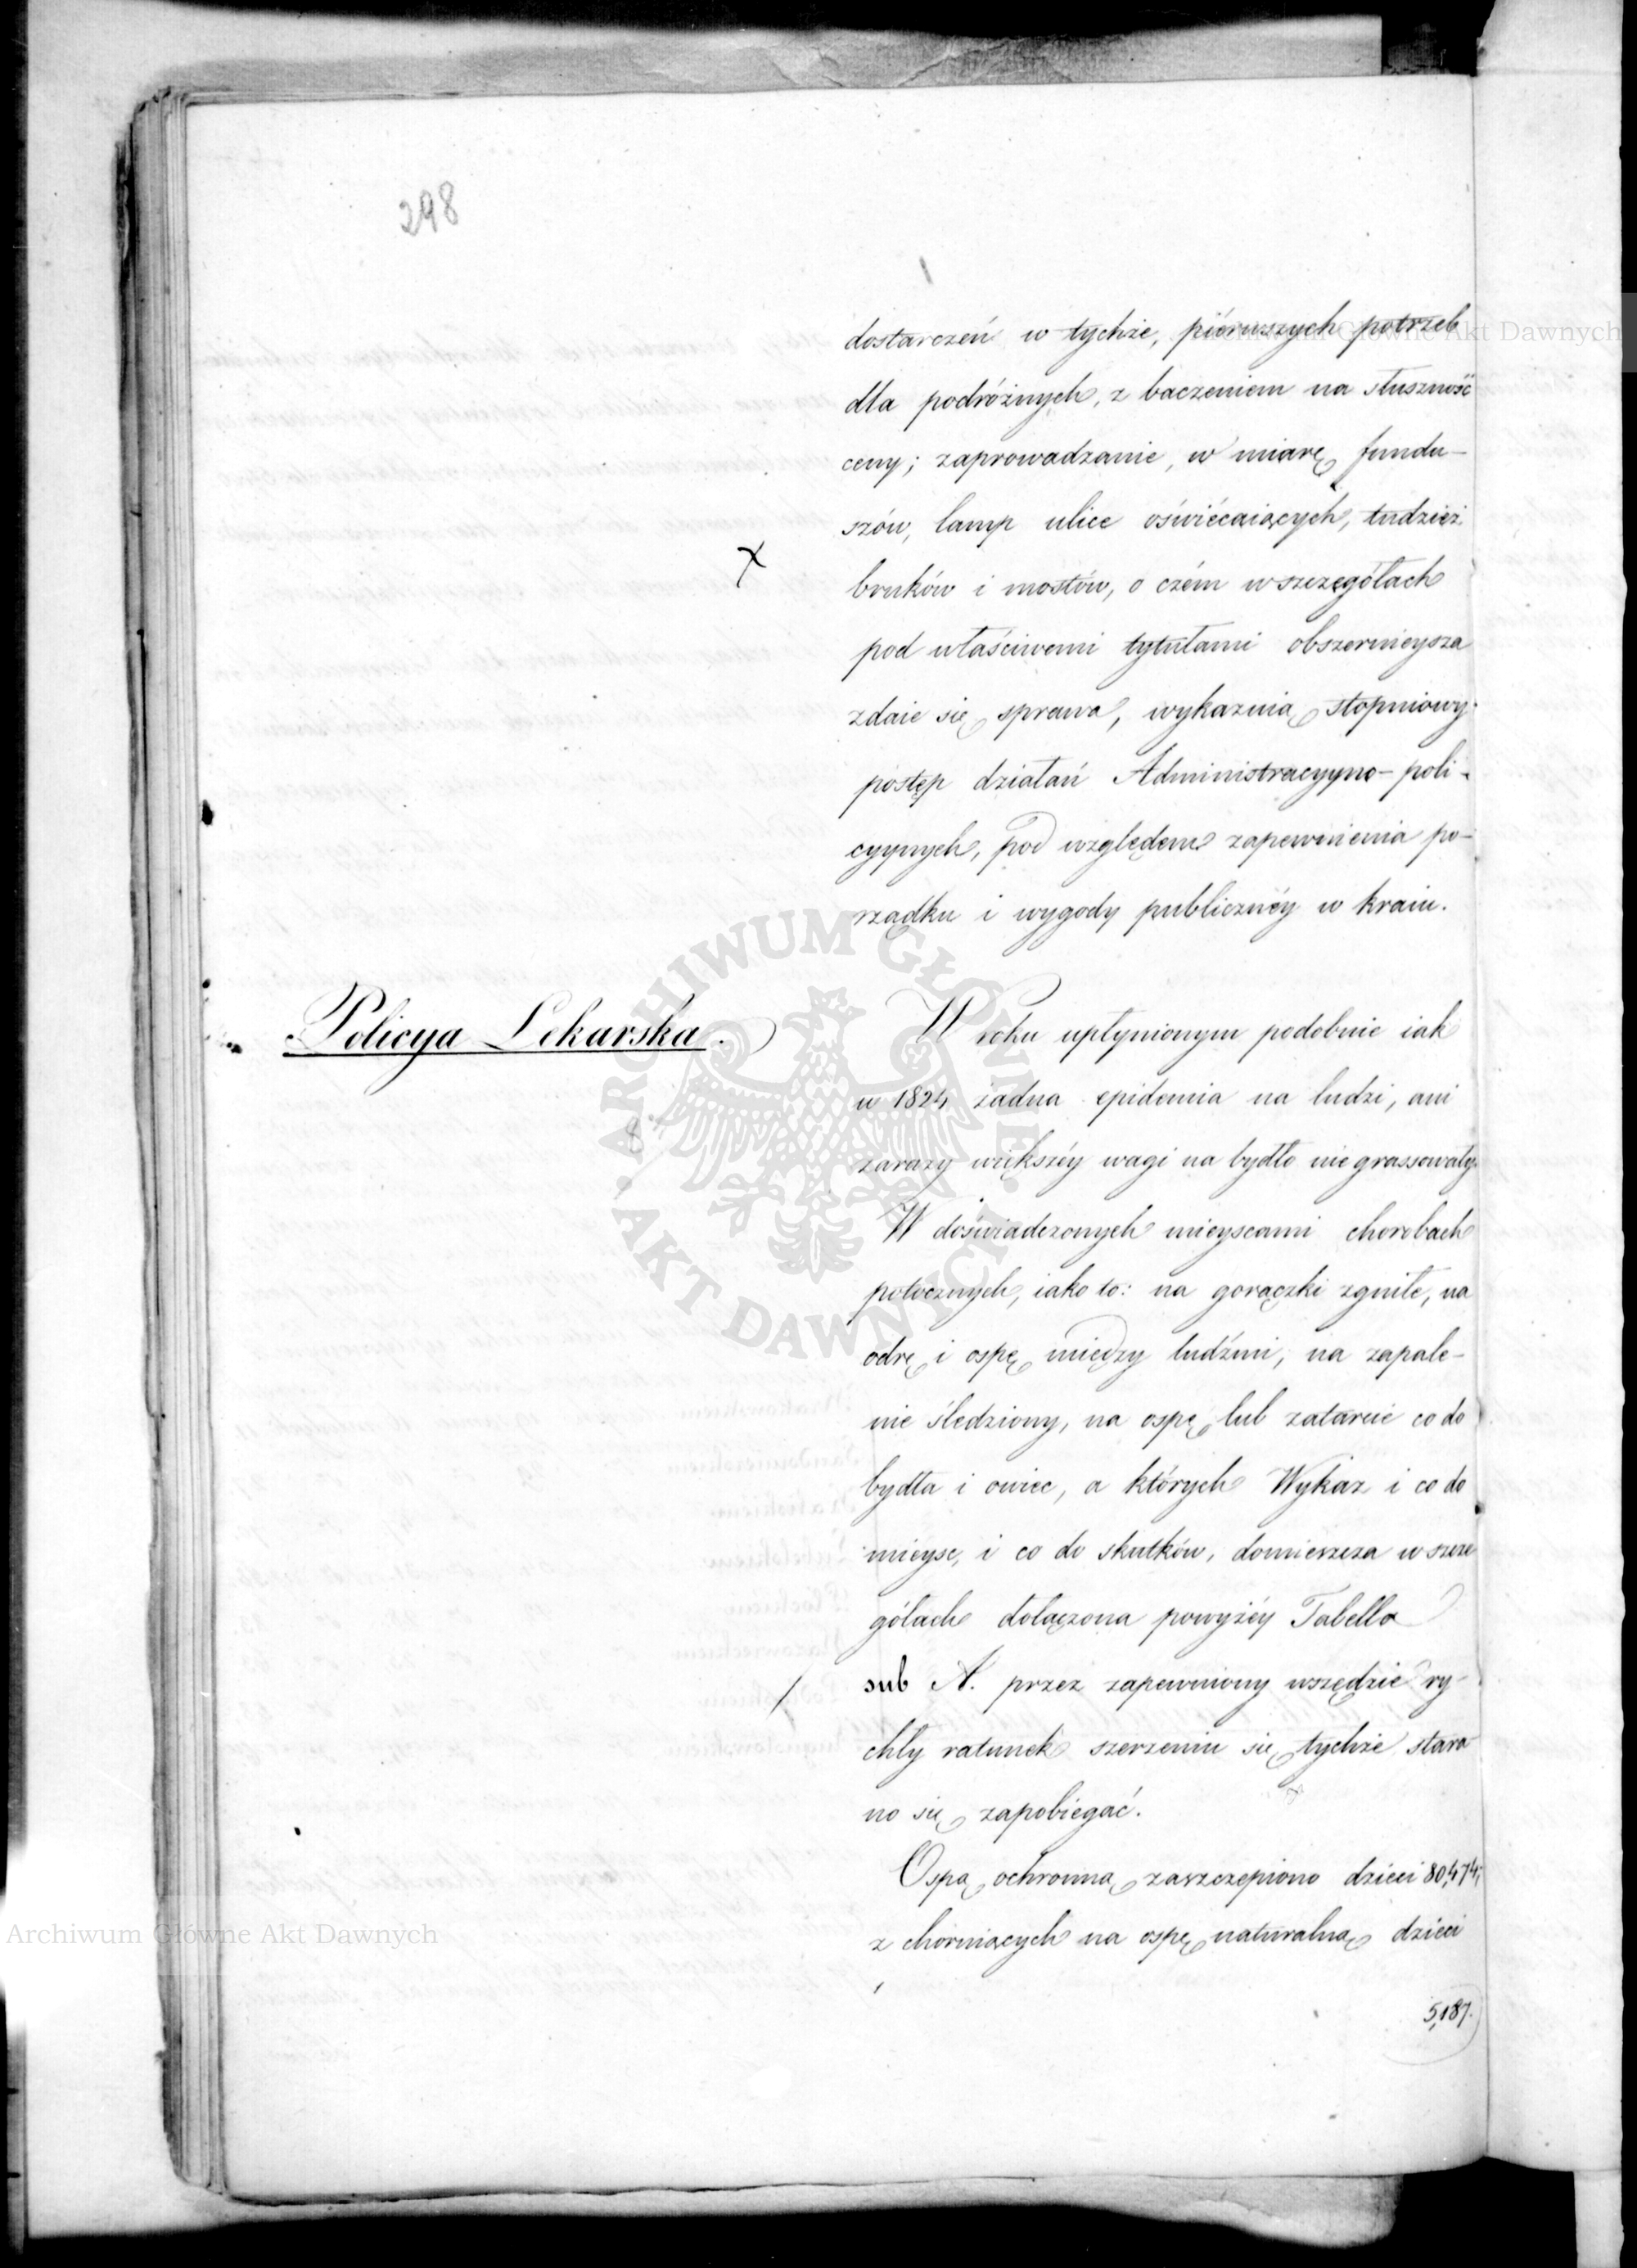 298
dostarczeń w tychże, piérwszych potrzeb
dla podróżnych, z baczeniem na słuszność
ceny; zaprowadzanie, w miarę fundu-
szów, lamp ulice oświécaiących, tudzież
bruków i mostów, o czém w szczegółach
pod właściwemi tytułami obszernieysza
zdaie się sprawa, wykazuią stopniowy
postęp działań Administracyyno-poli-
cyynych, pod względem zapewnienia po-
rządku i wygody publicznéy w kraiu.
Policya Lekarska.
W roku upłynionym podobnie iak
w 1824 żadna epidemia na ludzi, ani
zarazy większéy wagi na bydło nie grassowały.
W doświadczonych mieyscami chorobach
potocznych, iako to: na gorączki zgniłe, na
odrę i ospę między ludźmi, na zapale-
nie śledziony, na ospę lub zatarcie co do
bydła i owiec, a których Wykaz i co do
mieysc, i co do skutków, domierzcza w szcze
gółach dołączona powyżéy Tabella
sub A. przez zapewniony wszędzie ry-
chły ratunek szerzeniu się tychże stara
no się zapobiegać.
Ospą ochronną zaszczepiono dzieci 80,474;
z choruiących na ospę naturalną dzieci
5,187.
Archiwum Główne Akt Dawnych
Archiwum Główne Akt Dawnych
ARCHIWUM GŁÓWNE AKT DAWNYCH